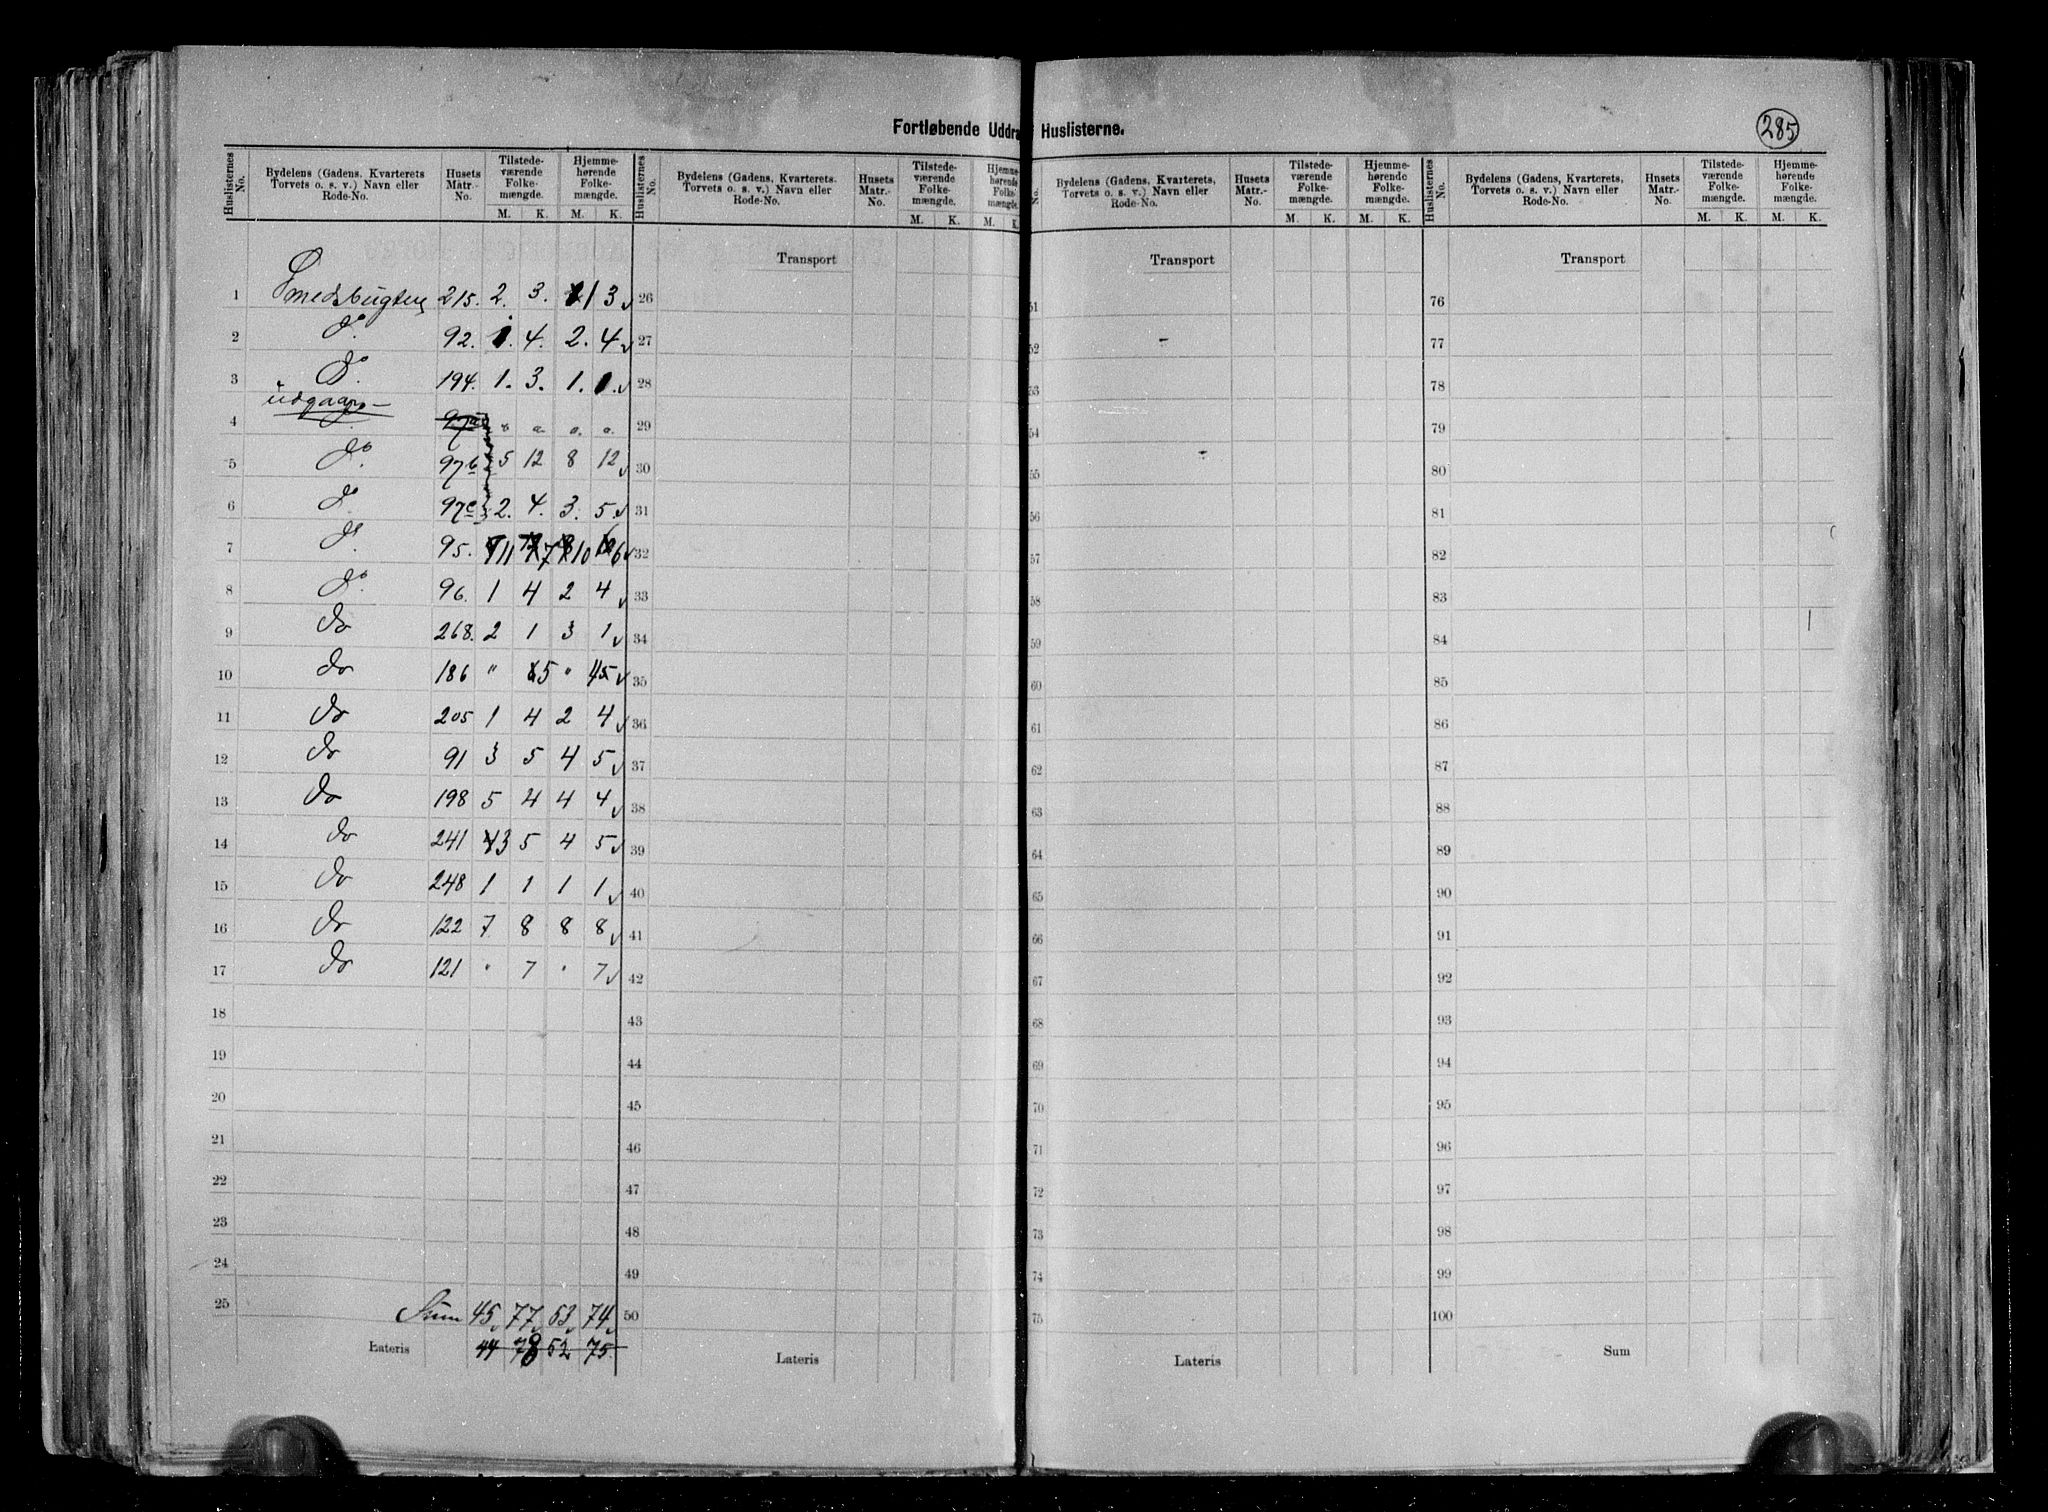 285
Fortløbende Uddra Huslisterne.
Huslisternes No. Bydelens (Gadens, Kvarterets Torvets o. s. v.) Navn eller Rode-No. Husets Matr.-No. Tilstede-værende Folke-mængde. M. K. Hjemme-hørende Folke-mængde. M. K.
Huslisternes No. Bydelens (Gadens, Kvarterets, Torvets o. s. v.) Navn eller Rode-No. Husets Matr.-No. Tilstede-værende Folke-mængde. M. K. Hjemme-hørende Folke-mængde. M. K.
No. Bydelens (Gadens, Kvarterets, Torvets o. s. v.) Navn eller Rode-No. Husets Matr.-No. Tilstede-værende Folke-mængde. M. K. Hjemme-hørende Folke-mængde. M. K.
Huslisternes No. Bydelens (Gadens, Kvarterets, Torvets o. s. v.) Navn eller Rode-No. Husets Matr.-No. Tilstede-værende Folke-mængde. M. K. Hjemme-hørende Folke-mængde. M. K.
Transport Transport Transport
1 Smedsbugten 215. 2. 3. 1 3 26 51 76
2 do. 92. 1. 4. 2. 4 27 52 77
3 do. 194. 1. 3. 1. 28 53 78
udgaar
4 97a " " " " 29 54 79
5 do. 97b 5 12 8 12 30 55 80
6 do. 97c 2. 4. 3. 5. 31 56 81
7 do. 95. 11 7 10 6 32 57 82
8 do. 96. 1 4 2 4 33 58 83
9 do 268. 2 1 3 1 34 59 84
10 do 186 " 5 " 5 35 60 85
11 do 205 1 4 2 4 36 61 86
12 do 91 3 5 4 5 37 62 87
13 do 198 5 4 4 4 38 63 88
14 do 241 3 5 4 5 39 64 89
15 do 248 1 1 1 1 40 65 90
16 do 122 7 8 8 8 41 66 91
17 do 121 " 7 " 7 42 67 92
18 43 68 93
19 44 69 94
20 45 70 95
21 46 71 96
22 47 72 97
23 48 73 98
24 49 74 99
25 Sum 45 77 53 74 50 75 100
Lateris 44 78 52 75 Lateris Lateris Sum